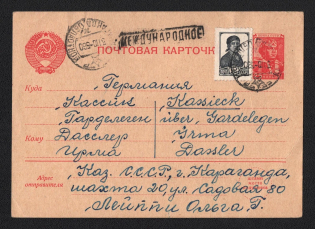 МЕЖДУНАРОДНОЕ
ПОЧТОВАЯ КАРТОЧКА
Куда Германия
Кассик Kassieck
Гарделеген über Gardelegen
Кому Дасслер Irma
Ирма Dassler
Адрес отправителя Каз. СССР, г. Караганда,
шахта 20, ул. Садовая 80
Лейппи Ольга Г.